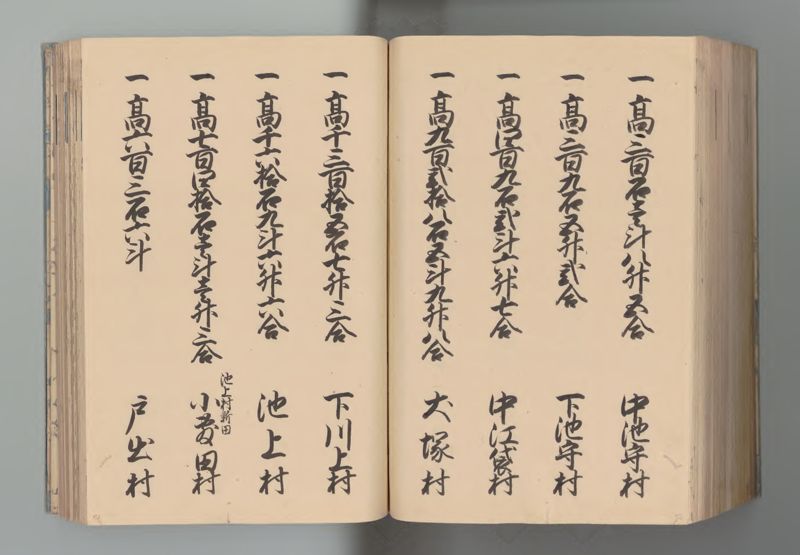 一 高三百石壱斗八升五合 中池守村
一 高三百九石五升弐合 下池守村
一 高四百九石弐斗六升七合 中江袋村
一 高九百弐拾八石五斗九升八合 犬塚村
一 高千三百拾五石七升三合 下川上村
一 高千六拾石九斗六升六合 池上村
池上村新田
一 高七百四拾石壱斗壱升三合 小敷田村
一 高六百三石六斗 戸出村